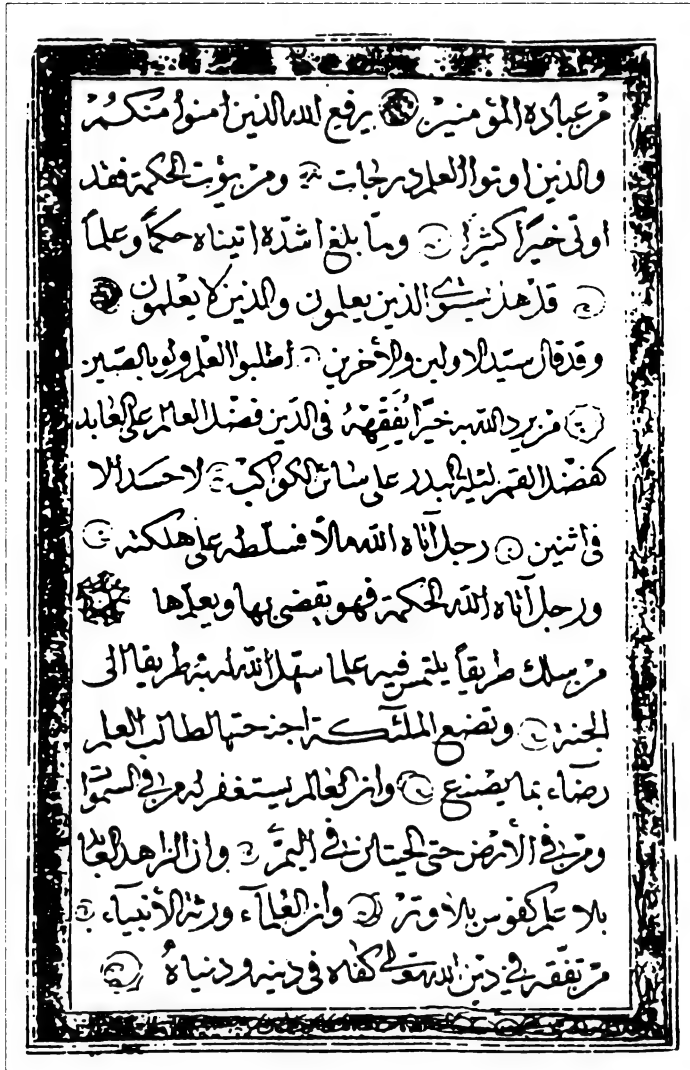 من عباده المؤمنين يرفع الله الذين امنوا منكم
والذين اوتوا العلم درجات ومن يؤت الحكمة فقد
اوتى خيرًا كثيرًا ولما بلغ اشدّه اتيناه حكماً وعلماً
قل هل يستوى الذين يعلمون والذين لا يعلمون
وقد قال سيّد الاولين والأخرين اطلبوا العلم ولو بالصّين
من يرد الله به خيرًا يُفَقِّههُ فى الدّين فضل العالم على العابد
كفضل القمر ليلة البدر على سائر الكواكب لا حسد الا
فى اثنين رجل آتاه الله مالًا فسلّطه على هلكته
ورجل آتاه الله الحكمة فهو يقضى بها ويعلّمها
من سلك طريقاً يلتمس فيه علما سهّل الله له به طريقا الى
الجنة وتضع الملئكة اجنحتها لطالب العلم
رضاء بما يصنع وان العالم يستغفر له من فى السموا
ومن فى الأرض حتى الحيتان فى اليمّ وان الزاهد
بلا علم كقوس بلا وتر وان العلمآء ورثة الأنبيآء
من تفقه فى دين الله كفاه فى دينه ودنياه